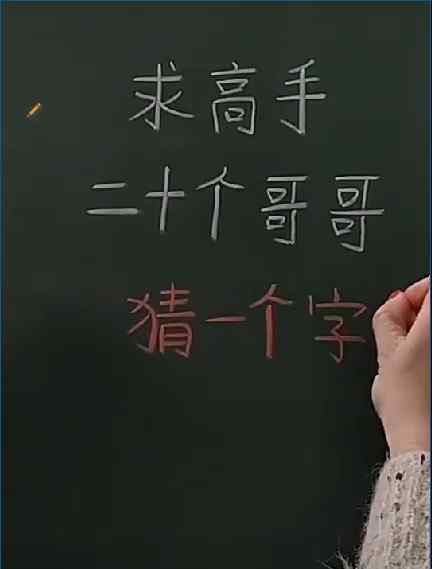 求高手
二十个哥哥
猜一个字